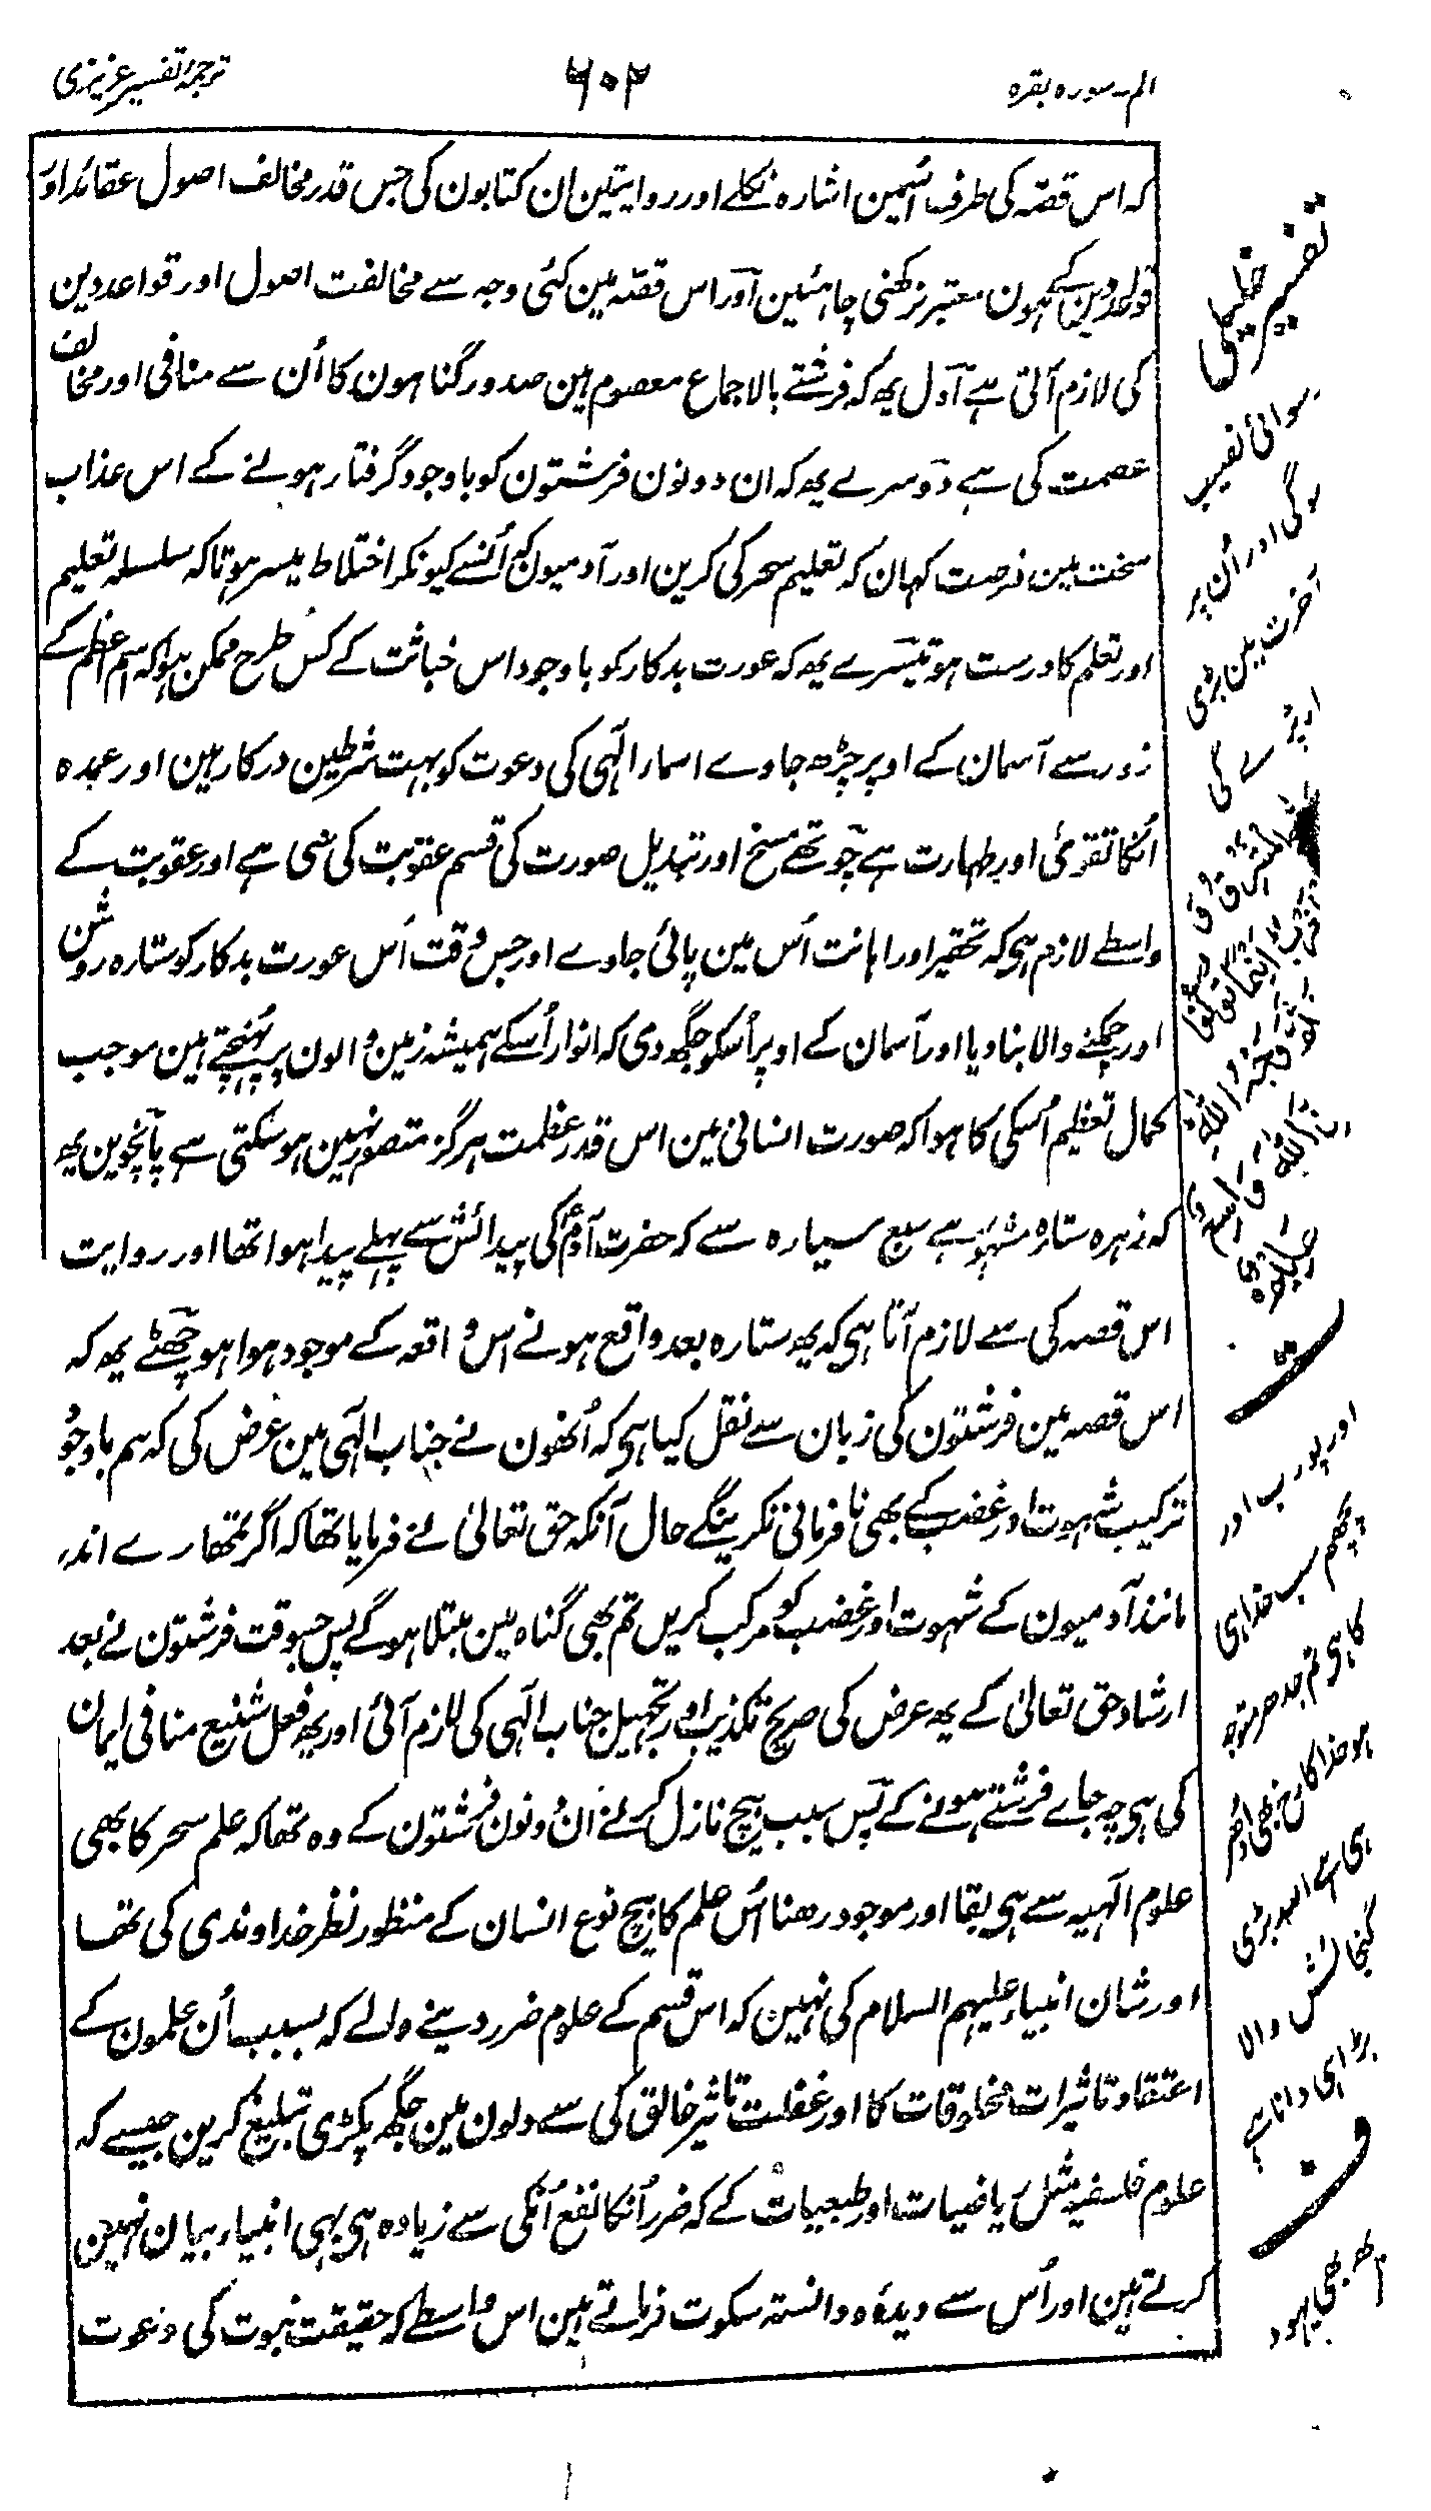 الم۔سورہ بقرہ
۶۰۲
ترجمۂ تفسیر عزیزی
کہ اس قصّہ کی طرف اسمین اشارہ نکلے اور روایتین ان کتابون کی جس قدر مخالف اصول عقائد اور
قواعد دین کے ہون معتبر نرکھنی چاہئین اور اس قصّہ مین کئی وجہ سے مخالفت اصول اور قواعد دین
کی لازم آتی ہے اول یہ کہ فرشتے بالاجماع معصوم ہین صدور گناہون کا اُن سے منافی اور مخالف
عصمت کی ہے دوسرے یہ کہ ان دونون فرشتون کو باوجود گرفتار ہونے کے اس عذاب
سخت مین فرصت کہان کہ تعلیم سحر کی کرین اور آدمیون کو اُنسے کیونکر اختلاط میسر ہوتا کہ سلسلہ تعلیم
اور تعلم کا درست ہو تیسرے یہ کہ عورت بدکار کو باوجود اس خباثت کے کس طرح ممکن ہو کہ اسم اعظم کے
زور سے آسمان کے اوپر چڑھ جاوے اسماء الٰہی کی دعوت کو بہت شرطین درکار ہین اور عمدہ
اُنکا تقویٰ اور طہارت ہے چوتھے مسخ اور تبدیل صورت کی قسم عقوبت کی سی ہے اور عقوبت کے
واسطے لازم ہی کہ تحقیر اور اہانت اُس مین پائی جاوے اور جس وقت اُس عورت بدکار کو ستارہ روشن
اور چمکنے والا بنا دیا اور آسمان کے اوپر اُسکو جگہ دی کہ انوار اُسکے ہمیشہ زمین والون پر پہنچتے ہین موجب
کمال تعظیم اُسکی کا ہوا کہ صورت انسانی مین اس قدر عظمت ہرگز متصور نہین ہو سکتی ہے پانچوین یہ
کہ زہرہ ستارہ مشہور ہے سبع سیارہ سے کہ حضرت آدم ؑ کی پیدائش سے پہلے پیدا ہوا تھا اور روایت
اس قصہ کی سے لازم آتا ہی کہ یہ ستارہ بعد واقع ہونے اس واقعہ کے موجود ہوا ہو چھٹے یہ کہ
اس قصہ مین فرشتون کی زبان سے نقل کیا ہی کہ اُنھون نے جناب الٰہی مین عرض کی کہ ہم باوجود
ترکیب شہوت اور غضب کے بھی نافرمانی نکرینگے حال آنکہ حق تعالیٰ نے فرمایا تھا کہ اگر تمھارے اندر
مانند آدمیون کے شہوت اور غضب کو مرکب کریں تم بھی گناہ مین مبتلا ہوگے پس جسوقت فرشتون نے بعد
ارشاد حق تعالیٰ کے یہ عرض کی صریح تکذیب اور تجہیل جناب الٰہی کی لازم آئی اور یہ فعل شنیع منافی ایمان
کی ہی چہ جاے فرشتے ہونے کے پس سبب بیچ نازل کرنے اُن دونون فرشتون کے وہ تھا کہ علم سحر کا بھی
علوم الٰہیہ سے ہی بقا اور موجود رہنا اُس علم کا بیچ نوع انسان کے منظور نظر خداوندی کی تھا
اور شان انبیاء علیہم السلام کی نہین کہ اس قسم کے علوم ضرر دینے والے کہ بسبب اُن علمون کے
اعتقاد تاثیرات مخلوقات کا اور غفلت تاثیر خالق کی سے دلون مین جگہ پکڑی تبلیغ کرین جیسے کہ
علوم فلسفیہ مثل ریاضیات اور طبعیات کے کہ ضرر اُنکا نفع اُنکی سے زیادہ ہی یہی انبیاء بیان نہین
کرتے ہین اور اُس سے دیدہ و دانستہ سکوت فرماتے ہین اس واسطے کہ حقیقت نبوت کی دعوت
تفسیر خلیلی
رسوائی نصیب
ہوگی اور اُن پر
آخرت مین بڑی
پڑے گی
اور پورب اور
پچھم سب خدا ہی
کا ہی تم جدھر متوجہ
ہو خدا کا رخ بھی اُدھر
ہی ہے اللہ بڑی
گنجائش والا
بڑا ہی دانا ہے
ف